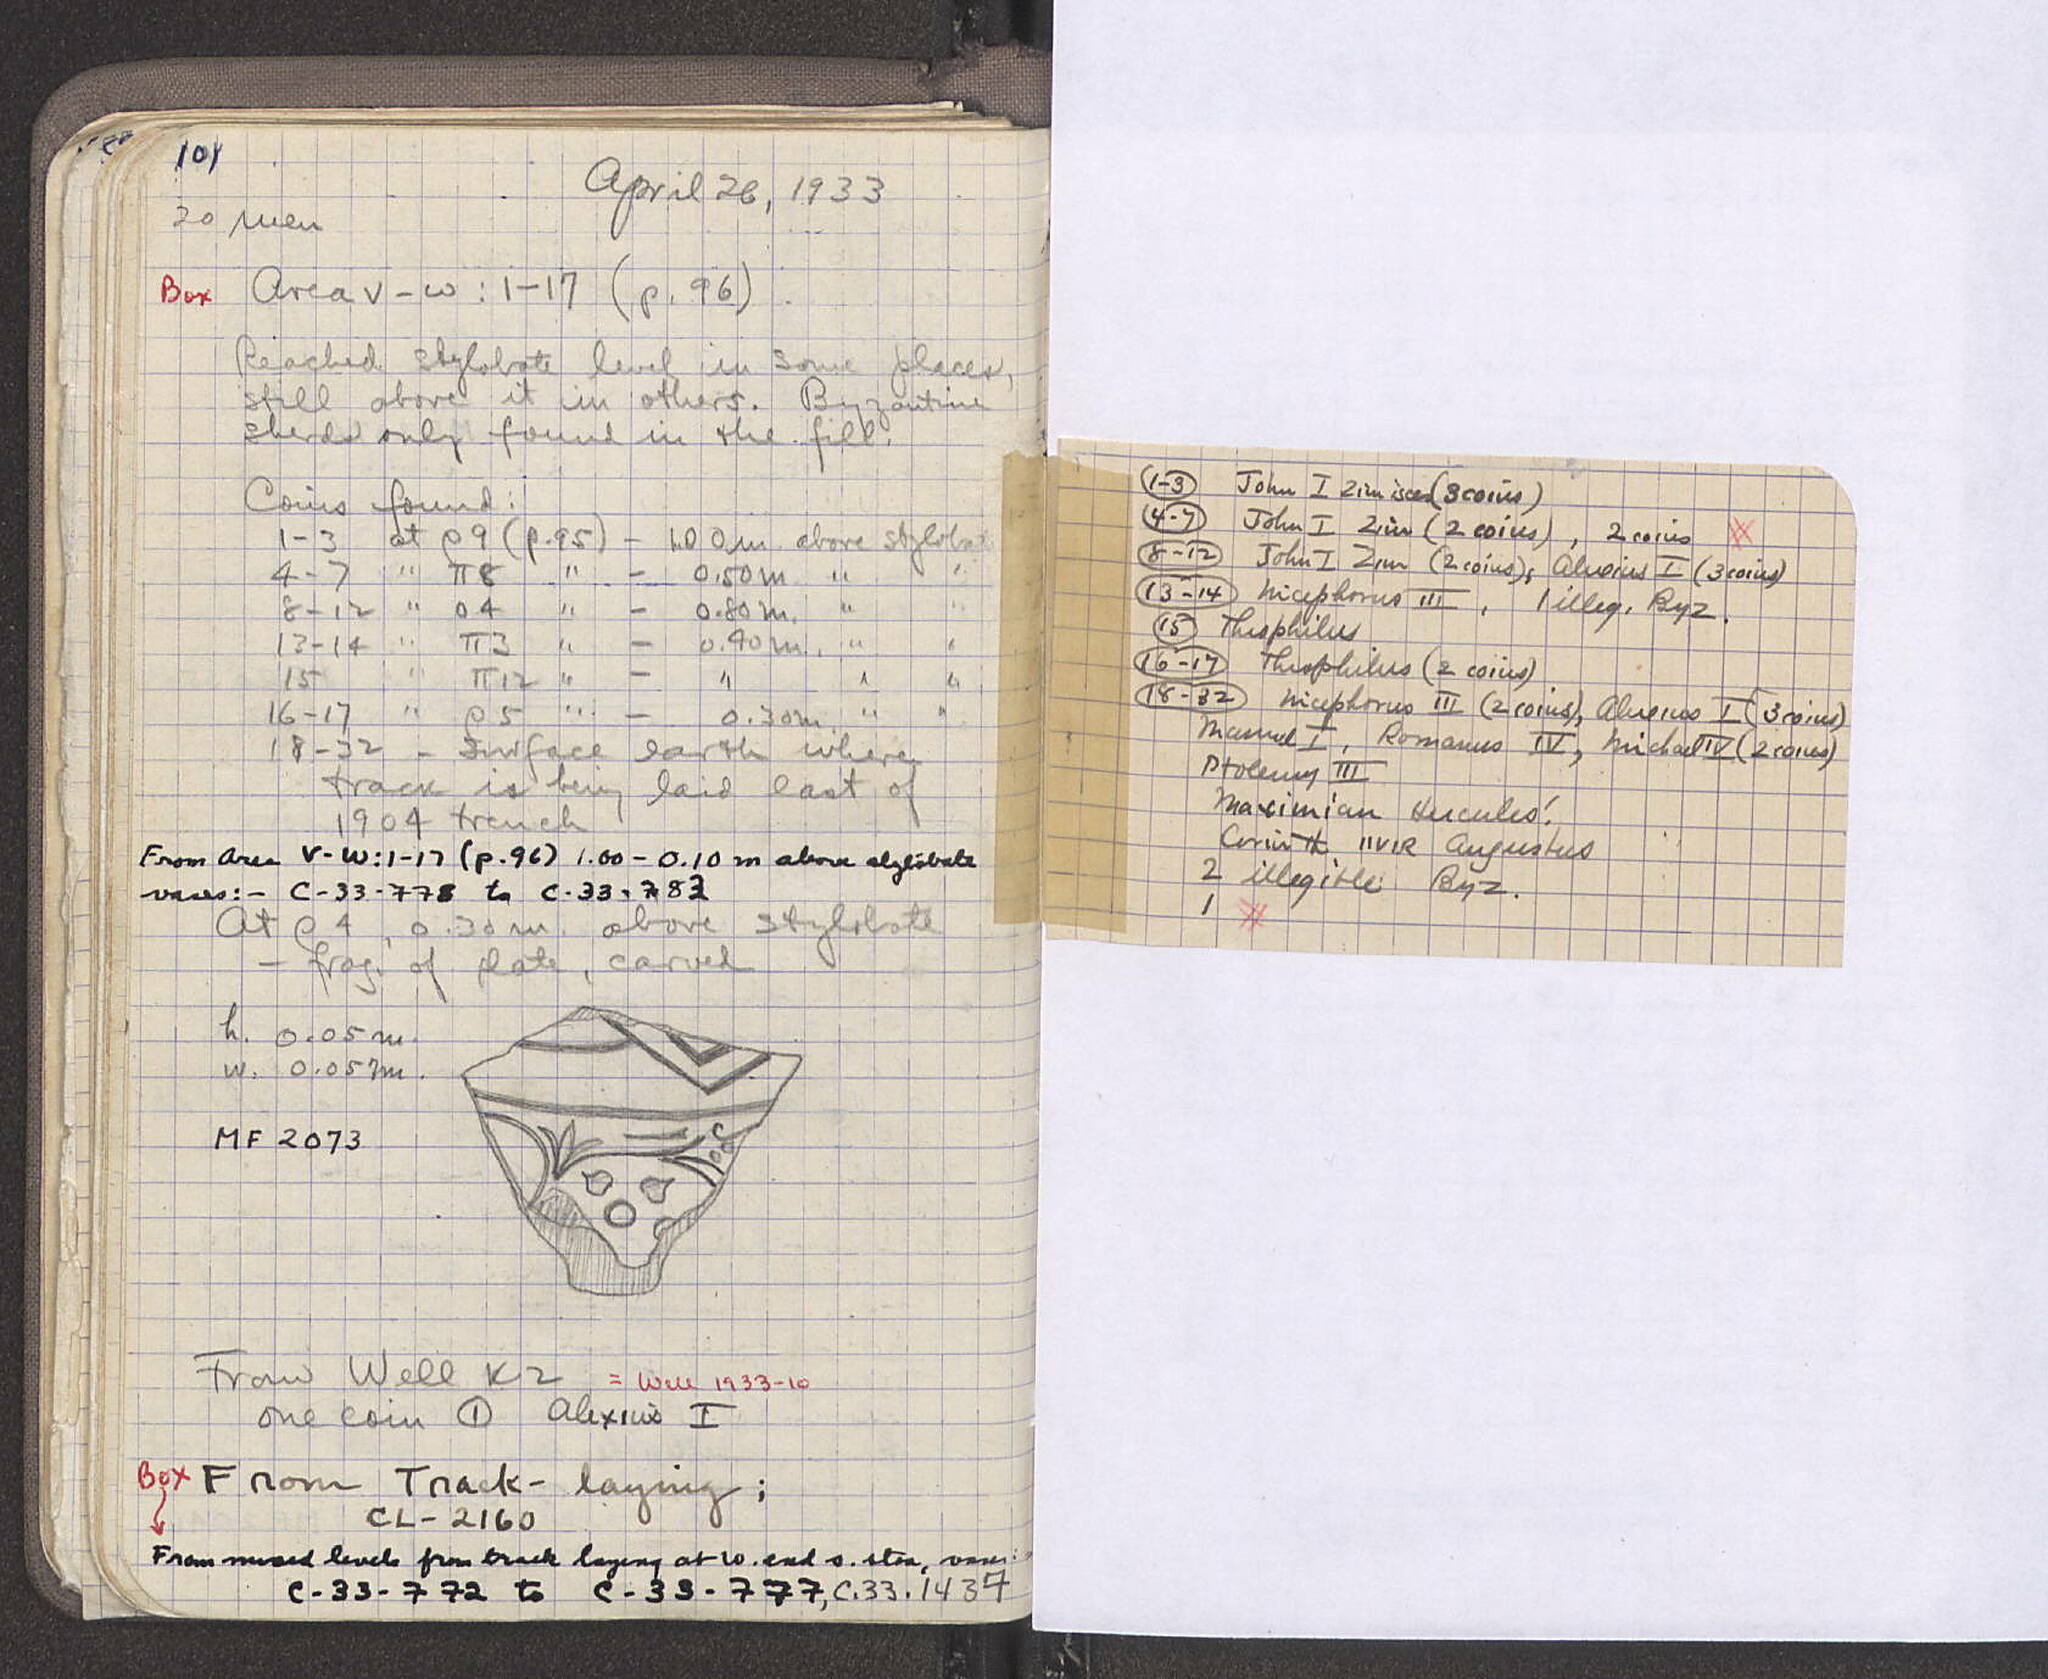 101
April 26, 1933
20 men
Box Area v-w: 1-17 (p. 96)
Reached stylobate level in some places,
still above it in others. Byzantine
sherds only found in the fill.
Coins found:
1-3 at ρ9 (p.95) - 1.00m above stylobate
4-7 " π8 " - 0.50m " "
8-12 " ο4 " - 0.80m. " "
13-14 " π3 " - 0.90m. " "
15 " π12 " - " " "
16-17 " ρ5 " - 0.30m " "
18-32 - Surface earth where
track is being laid east of
1904 trench
From Area V-W:1-17 (p.96) 1.00-0.10 m above stylobate
vases:- C-33-778 to C-33-783
At ρ4, 0.30m. above stylobate
- frag. of plate, carved
h. 0.05m.
w. 0.057m.
MF 2073
From Well K2 = Well 1933-10
one coin ① Alexius I
Box From Track-laying;
CL-2160
From mixed levels from track laying at w. end s. stoa, vases:
C-33-772 to C-33-777, C.33.1437
1-3 John I Zimisces (3 coins)
4-7 John I Zim (2 coins), 2 coins
8-12 John I Zim (2 coins), Alexius I (3 coins)
13-14 Nicephorus III, 1 illeg. Byz.
15 Theophilus
16-17 Theophilus (2 coins)
18-32 Nicephorus III (2 coins), Alexius I (3 coins)
Manuel I, Romanus IV, Michael IV (2 coins)
Ptolemy III
Maximian Hercules!
Corinth IIVIR Augustus
2 illegible Byz.
1